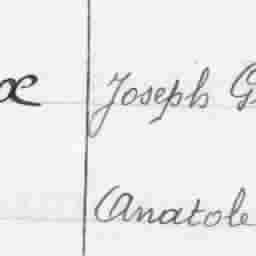 Joseph
Anatole